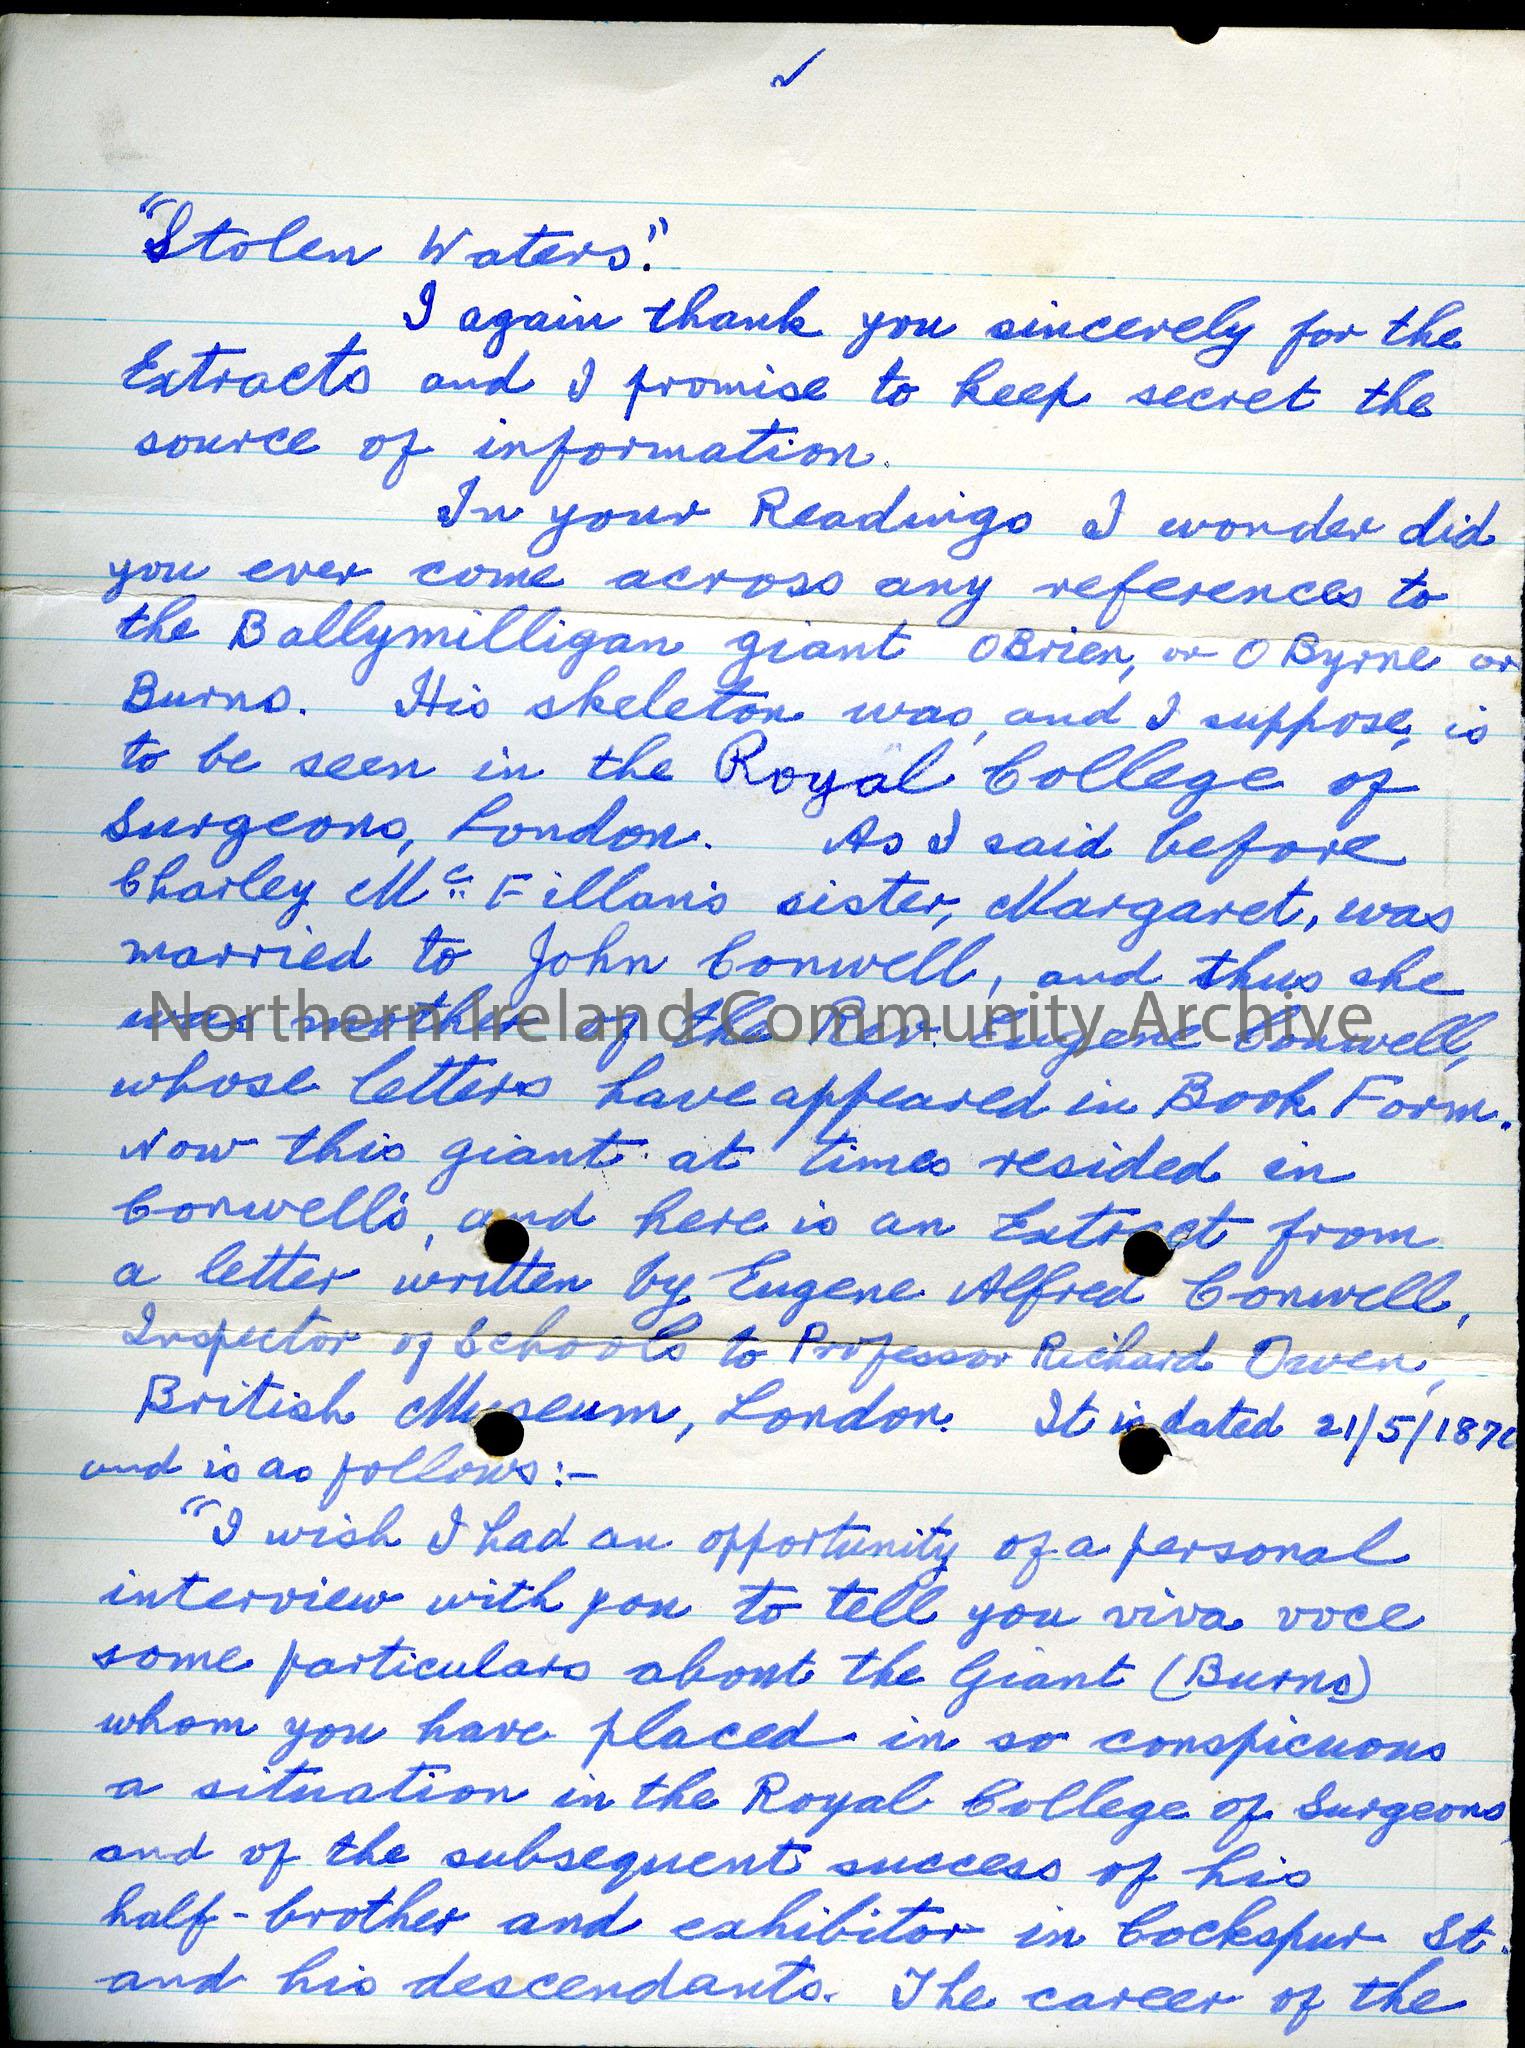 "Stolen Waters."
I again thank you sincerely for the
Extracts and I promise to keep secret the
source of information.
In your Readings I wonder did
you ever come across any references to
the Ballymilligan giant OBrien, or O Byrne or
Burns. His skeleton was, and I suppose, is
to be seen in the Royal College of
Surgeons, London. As I said before
Charley Mc Fillan's sister, Margaret, was
married to John Conwell, and thus she
was mother of the Rev. Eugene Conwell,
Northern Ireland Community Archive
whose letters have appeared in Book Form.
Now this giant at times resided in
Conwell's, and here is an Extract from
a letter written by Eugene Alfred Conwell,
Inspector of Schools to Professor Richard Owen,
British Museum, London. It is dated 21/5/1870
and is as follows:-
"I wish I had an opportunity of a personal
interview with you to tell you viva voce
some particulars about the Giant (Burns)
whom you have placed in so conspicuous
a situation in the Royal College of Surgeons,
and of the subsequent success of his
half-brother and exhibitor in Cockspur St.
and his descendants. The career of the